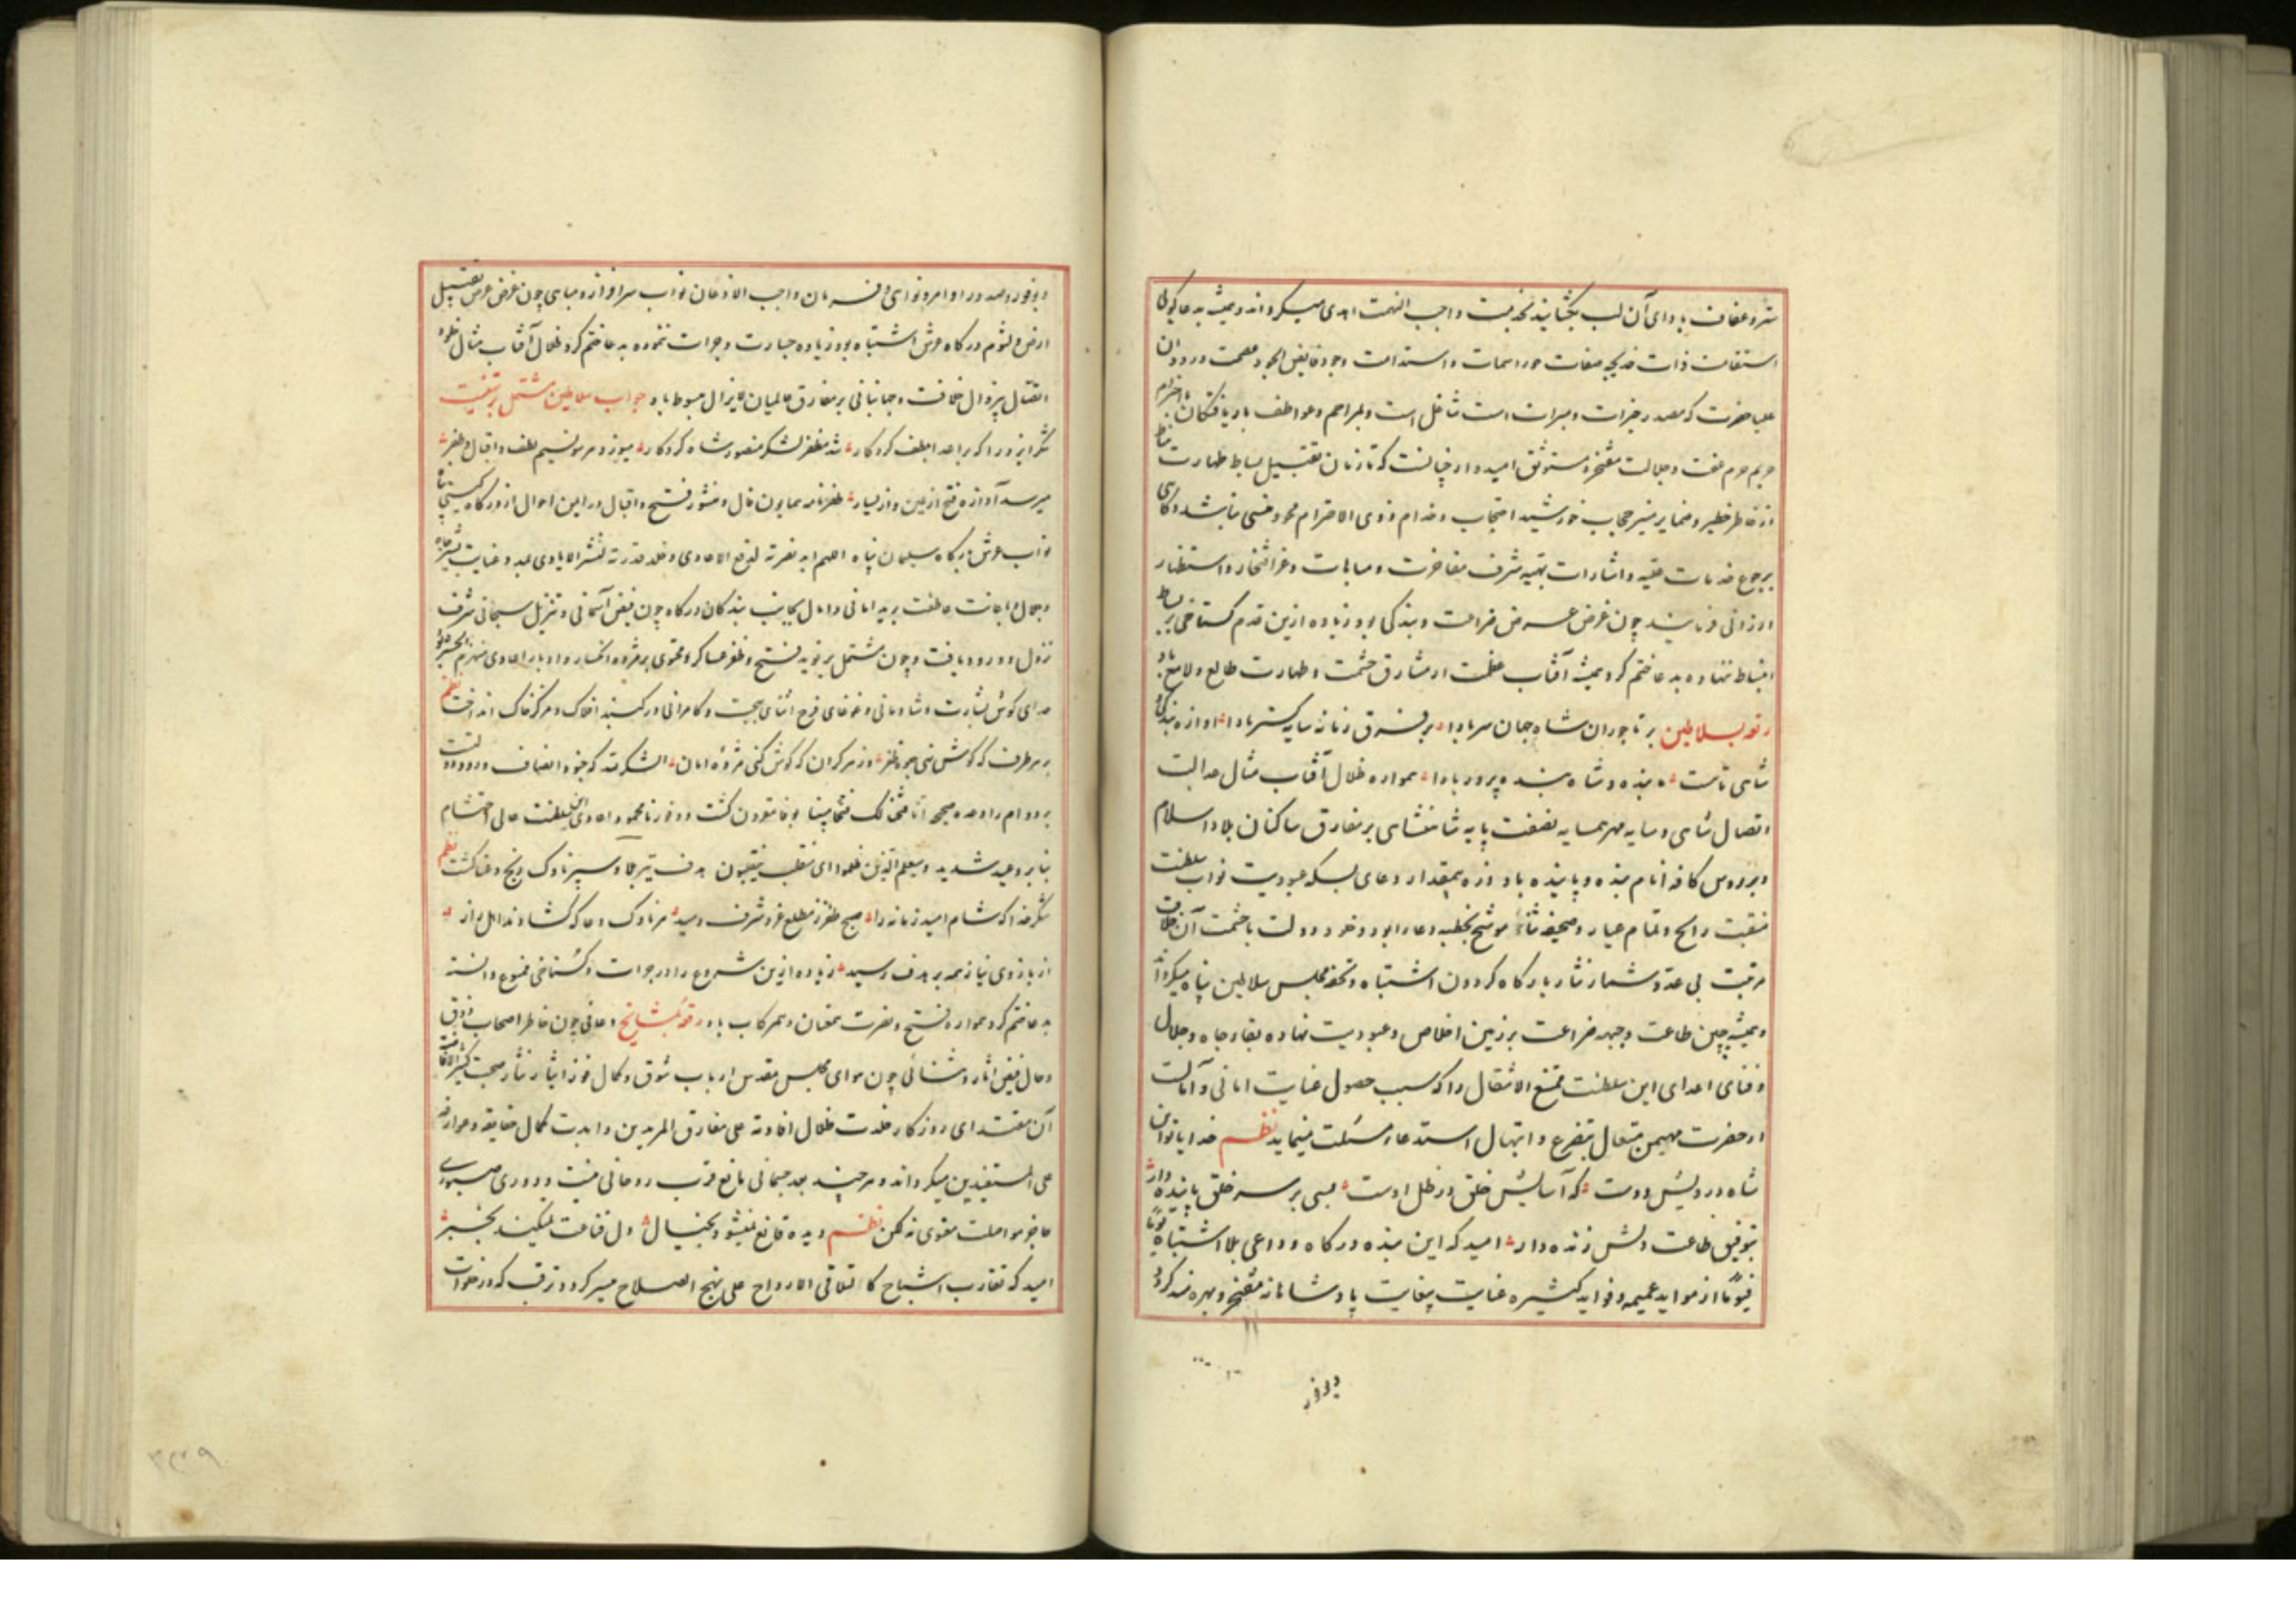 ستر و عفاف باد ای آن لب بگشاید واجب النهمت اهدی میگرداند و همیشه به دعاگوئی
استقامت ذات خدیجه صفات حورا سمات و استدامت وجود فایض الجود عصمت
علیا حضرت که مصدر خیرات و مبرات است شاغل است و بمراحم و عواطف باریافتگان
حریم حرم عفت و جلالت مفتخر و مستوثق امیدوار چنانست که تا زمان تقبیل بساط طهارت مناط
از خاطر خطیر و ضمایر منیر حجاب خورشید احتجاب و خدام ذوی الاحترام محو و منسی نباشد و گاهی
برجوع خدمات علیه و اشارات بهیه شرف مفاخرت و مباهات و عز افتخار و استظهار
ارزانی فرمایند چون غرض عرض ضراعت و بندگی بود زیاده ازین قدم گستاخی بر بساط
انبساط ننهاده به دعا ختم کرد همیشه آفتاب عظمت از مشارق حشمت و طهارت طالع و لامع باد
رقعه بسلاطین بر تاجوران شاه جهان سر بادا بر فرق زمانه سایه گستر بادا آوازه بندگی و
شاهی تا هست بنده و شاه بنده پرور بادا همواره ظلال آفتاب مثال عدالت
اتصال شاهی و سایه مهر همسایه نصفت پایه شاهنشاهی بر مفارق ساکنان بلاد اسلام
و بر رؤس کافه انام بنده و پاینده باد ذره بیمقدار دعای بسکه عبودیت نواب سلطنت
منقبت رایج و تمام عیار و صحیفه ثنا موشح بخطبه دعا را بود و خلود دولت با حشمت آن خلافت
مرتبت بی عد و شمار نثار بارگاه گردون اشتباه و تحفه مجلس سلاطین پناه میگرداند
و همیشه جبین طاعت و جبهه ضراعت بر زمین اخلاص و عبودیت نهاده بقا و جاه و جلال
و فنای اعدای این سلطنت ممتنع الانتقال را که سبب حصول غایت امانی و آمالست
از حضرت مهیمن متعال بتضرع و ابتهال استدعا و مسئلت مینماید نظم خدایا تو این
شاه درویش دوست که آسایش خلق در ظل اوست بسی بر سر خلق پاینده دار
بتوفیق طاعت دلش زنده دار امید که این بنده درگاه و داعی بلا اشتباه یوماً
فیوماً از مواید عمیمه و فواید کثیره عنایت بیغایت پادشاهانه مفتخر و بهره مند گردد
و بوفور
و بوفور صدور اوامر و نواهی و فرمان واجب الاذعان نواب سرافراز و مباهی چون غرض عرض تقبیل
ارض و لثوم درگاه عرش اشتباه بود زیاده جسارت و جرات ننموده به دعا ختم کرد ظلال آفتاب مثال
اتصال بیزوال خلافت و جهانبانی بر مفارق عالمیان لایزال مبسوط باد جواب سلاطین مشتمل بر تهنیت
شکر ایزد را که بر اعدا بلطف کردگار شد مظفر لشکر منصور شاه کردکار میوزد هر سو نسیم لطف و اقبال و ظفر
میرسد آوازه فتح از یمین و از یسار ظفرنامه همایون فال و منشور فتح و اقبال درین احوال از درگاه گیتی پناه
نواب عرش بارگاه سلیمان پناه اللهم اید نصرته لقمع الاعادی و خلد قدرته لنشر الایادی
و جلال باعانت عاطفت برید امانی و آمال بجانب بندگان درگاه چون فیض آسمانی و تنزیل سبحانی شرف
نزول و ورود یافت و چون مشتمل بر نوید فتح و ظفر عساکر و محتوی بر مژده انکسار و ادبار اعادی
صدای کوس بشارت و شادمانی و غوغای فرح افزای بهجت و کامرانی در گنبد افلاک و مرکز خاک انداخت نظم
بر هر طرف که گوش نهی مژده ظفر وز هر کران که گوش کنی مژده امان الشکر لله که جنود انصاف و
بر دوام را وعده صحیحه انا فتحنا لک فتحا مبینا بوفا مقرون گشت و اعادی این سلطنت عالی احتشام
بنابر وعید شدید و سیعلم الذین ظلموا ای منقلب ینقلبون هدف تیر بلا و سپر ناوک رنج و عنا گشت نظم
شکر خدا که شام امید زمانه را صبح ظفر ز مطلع عز و شرف دمید هر ناوک دعا که گشادند اهل راز
از بازوی نیاز همه بر هدف رسید زیاده ازین شروع را در جرات و گستاخی ممنوع دانسته
به دعا ختم کرد همواره فتح و نصرت همعنان و همرکاب باد رقعه بمشایخ دعائی چون خاطر اصحاب ذوق
و حال فیض آثار و ثنائی چون هوای مجلس مقدس ارباب شوق و کمال فوز ایثار نثار صحبت
آن مقتدای روزگار خلدت ظلال افادته علی مفارق المریدین و ابدت کمال حقایقه و عوارفه
علی المستفیدین میگرداند و هر چند بعد جسمانی مانع قرب روحانی نیست و دوری صوری
حاجز مواصلت معنوی نه لکن نظم دیده قانع نمیشود بخیال دل قناعت نمیکند بخبر
امید که تقارب اشباح کالتلاقی الارواح علی نهج الصلاح میسر گردد و ترقب که در خلوات